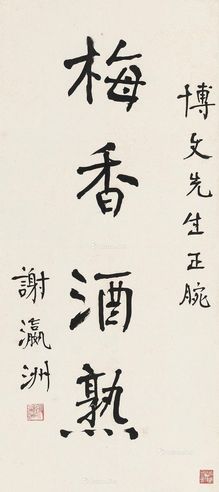 博文先生正腕
梅香酒熟
謝瀛洲